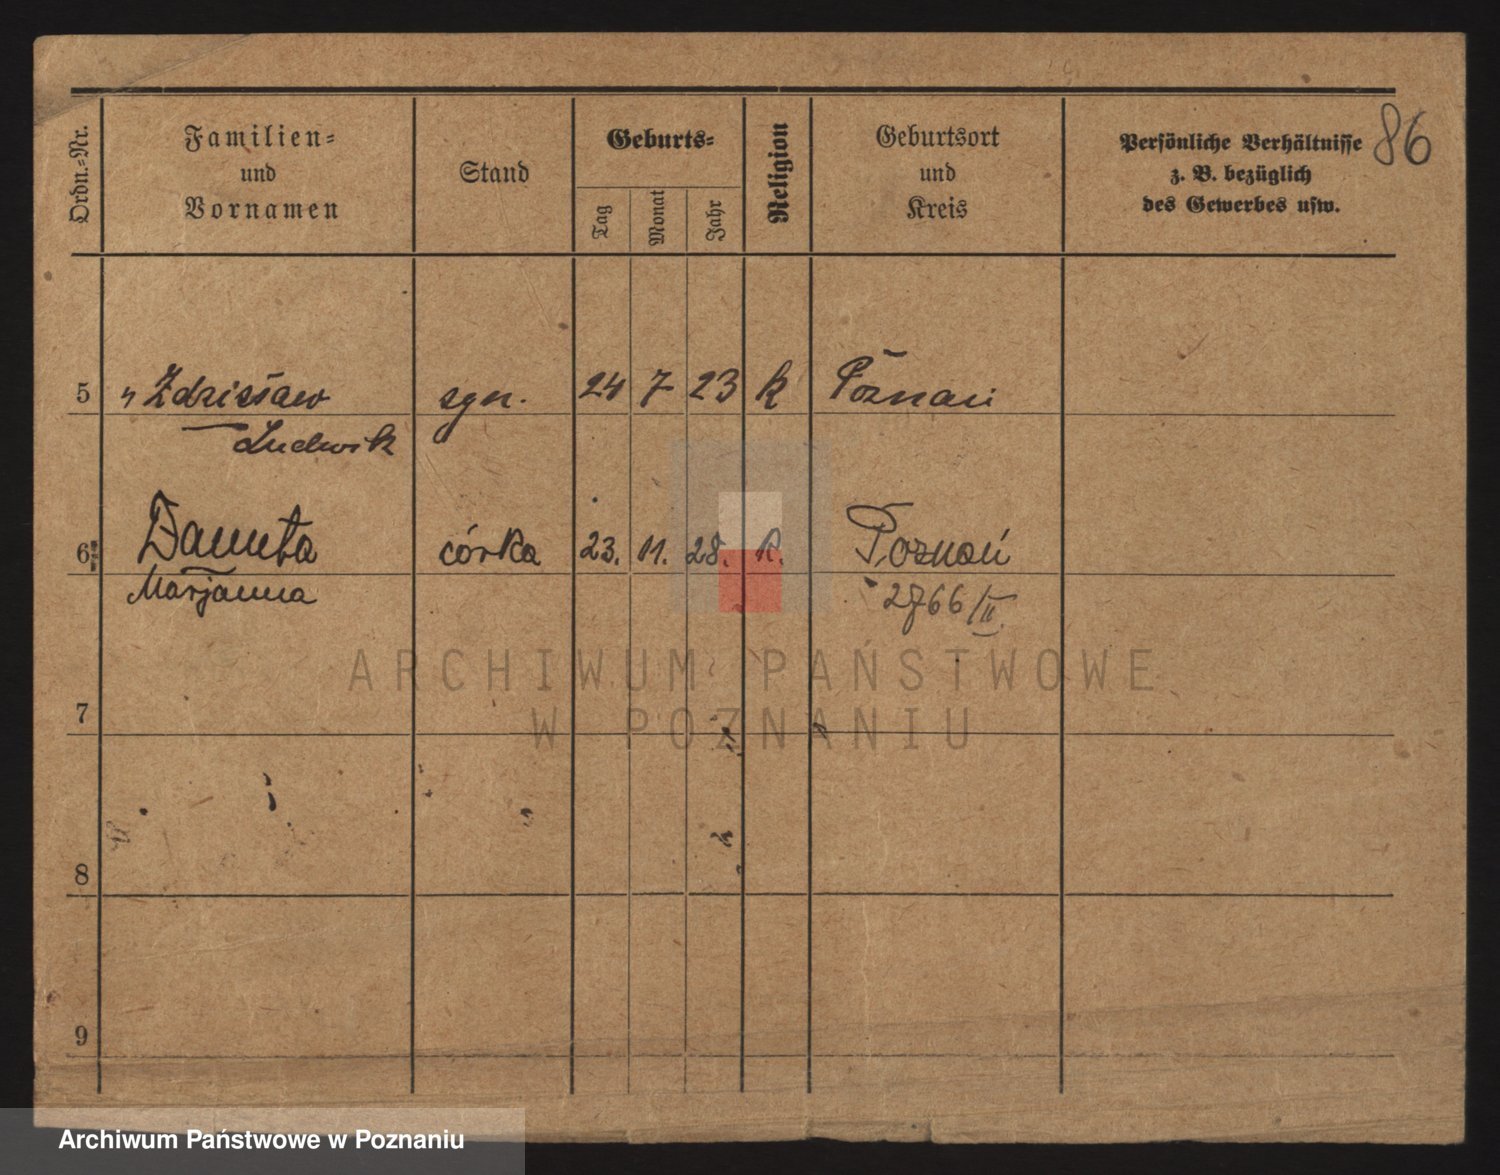 Ordn.-Nr.
Familien-
und
Vornamen
Stand
Geburts-
Tag
Monat
Jahr
Religion
Geburtsort
und
Kreis
Persönliche Verhältnisse
z. B. bezüglich
des Gewerbes usw.
86
5 " Zdzisław syn. 24 7 23 k Poznań
Ludwik
6 Danuta córka 23. 11. 28. k. Poznań
Marjanna 2766/II.
ARCHIWUM PAŃSTWOWE
W POZNANIU
7
8
9
Archiwum Państwowe w Poznaniu